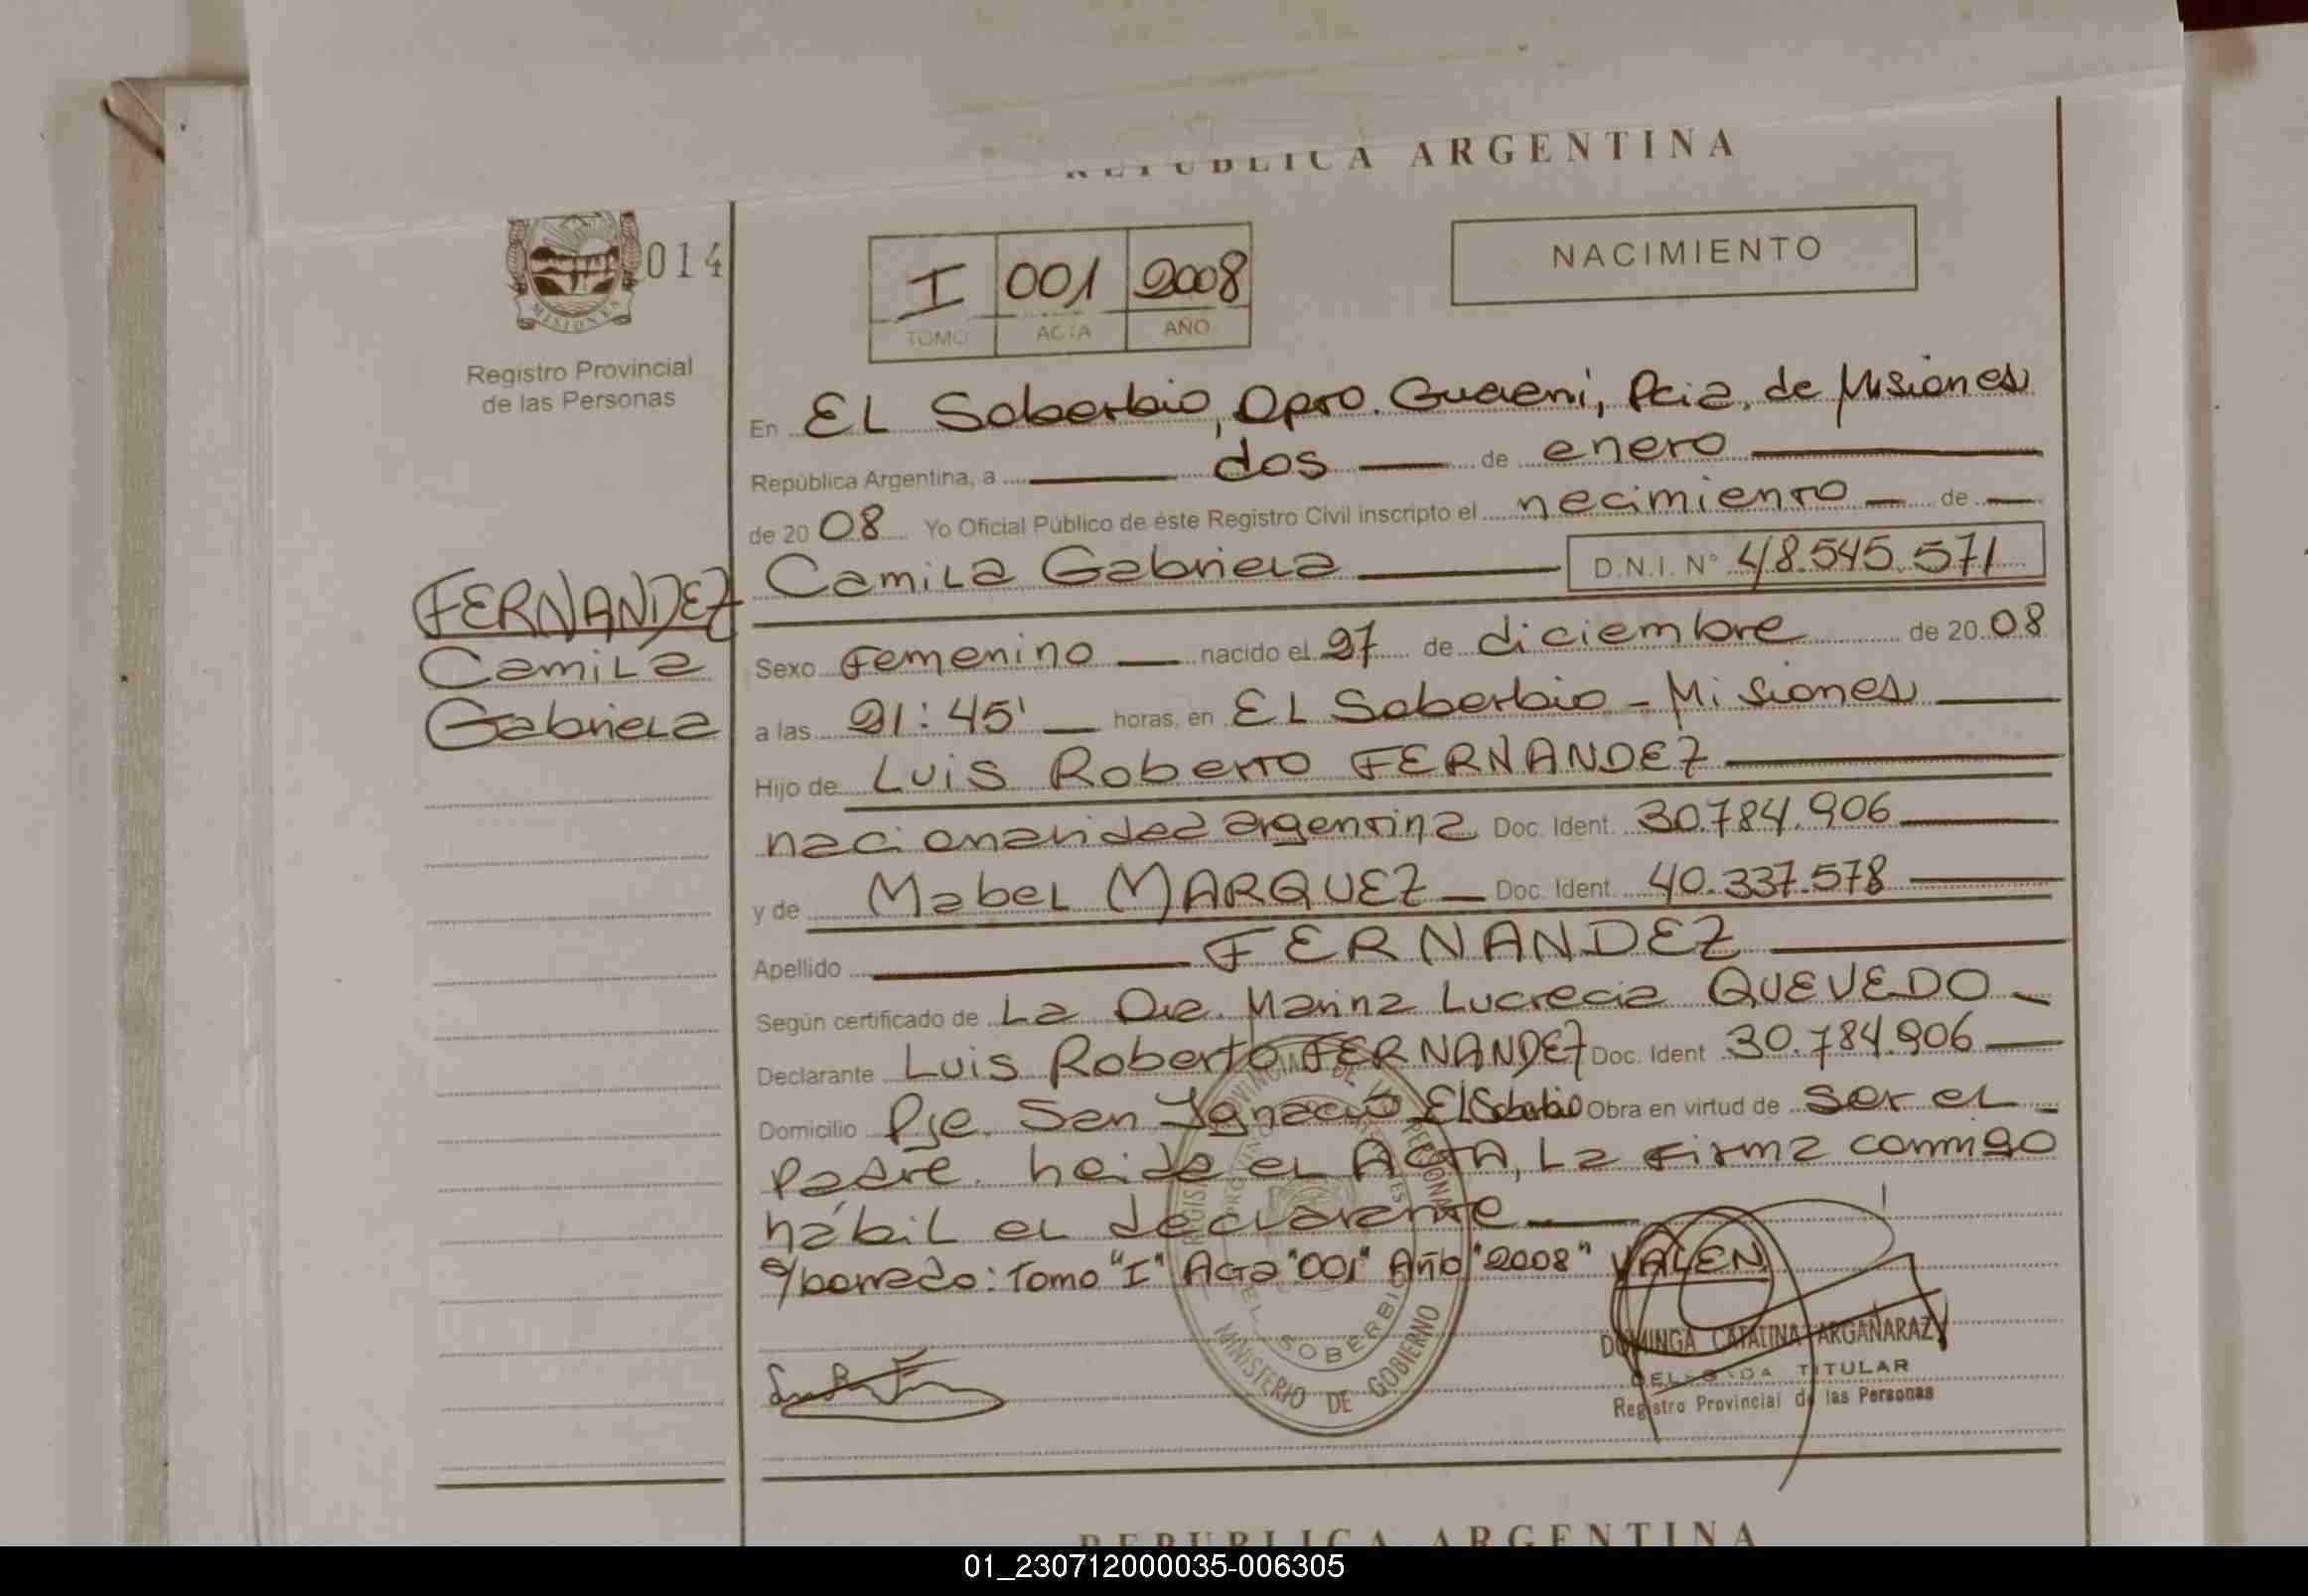 REPUBLICA ARGENTINA
014
MISIONES
Registro Provincial
de las Personas
I 001 2008
TOMO ACTA AÑO
NACIMIENTO
En EL Soberbio, Dpto. Guaraní, Pcia. de Misiones
República Argentina, a dos de enero
de 2008 Yo Oficial Público de éste Registro Civil inscripto el nacimiento de
Camila Gabriela D.N.I. N° 48.545.571
FERNANDEZ
Camila
Gabriela
Sexo Femenino nacido el 27 de diciembre de 2008
a las 21:45' horas, en EL Soberbio - Misiones
Hijo de Luis Roberto FERNANDEZ
nacionalidad argentina Doc. Ident. 30.784.906
y de Mabel MARQUEZ Doc. Ident. 40.337.578
Apellido FERNANDEZ
Según certificado de La Dra. Marina Lucrecia QUEVEDO
Declarante Luis Roberto FERNANDEZ Doc. Ident 30.784.906
Domicilio Pje. San Ignacio El Soberbio Obra en virtud de ser el
Padre. heida el ACTA, La firma conmigo
hábil el declarante
s/borrado: Tomo "I" Acta "001" Año "2008" VALEN
DOMINGA CATALINA ARGAÑARAZ
DELEGADA TITULAR
Registro Provincial de las Personas
EL SOBERBIO
MINISTERIO DE GOBIERNO
REPUBLICA ARGENTINA
01_230712000035-006305